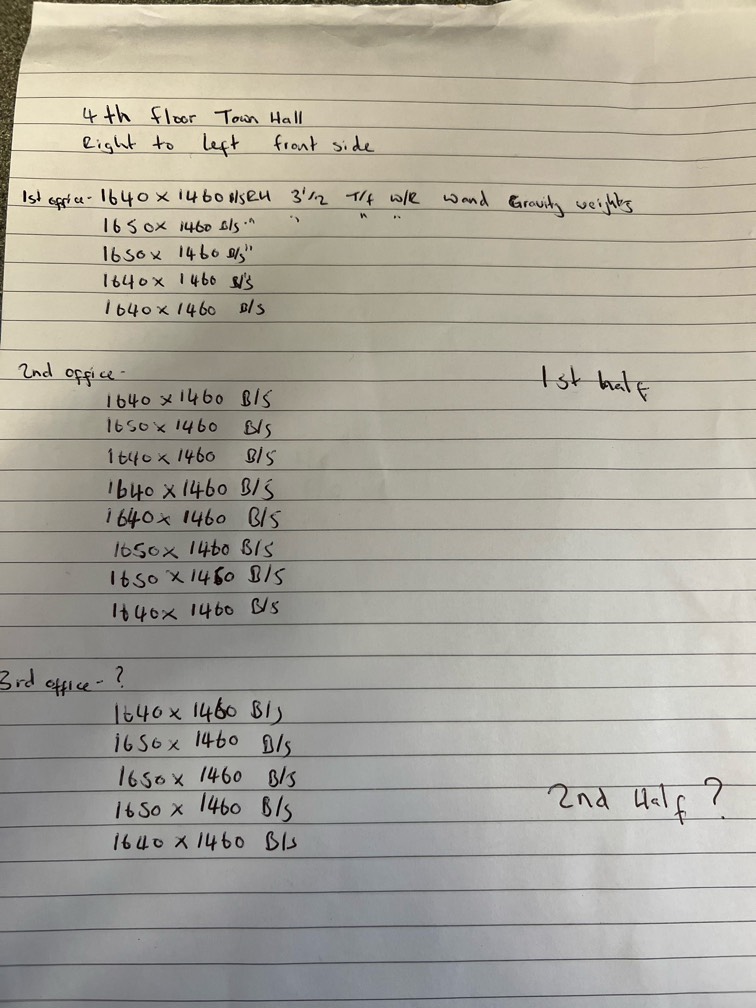 4th floor Town Hall
Right to left front side
1st office - 1640 x 1460 B/S RH 3'1/2 T/f W/R Wand Gravity weights
1650 x 1460 B/s " " " "
1650 x 1460 B/s "
1640 x 1460 B/s
1640 x 1460 B/s
2nd office -
1640 x 1460 B/S
1st half
1650 x 1460 B/s
1640 x 1460 B/S
1640 x 1460 B/S
1640 x 1460 B/S
1650 x 1460 B/S
1650 x 1460 B/S
1640 x 1460 B/s
3rd office - ?
1640 x 1460 B/s
1650 x 1460 B/s
1650 x 1460 B/s
1650 x 1460 B/s
2nd Half ?
1640 x 1460 B/s